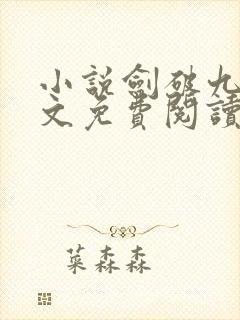 小說劍破九
文免費閱讀
菜森森